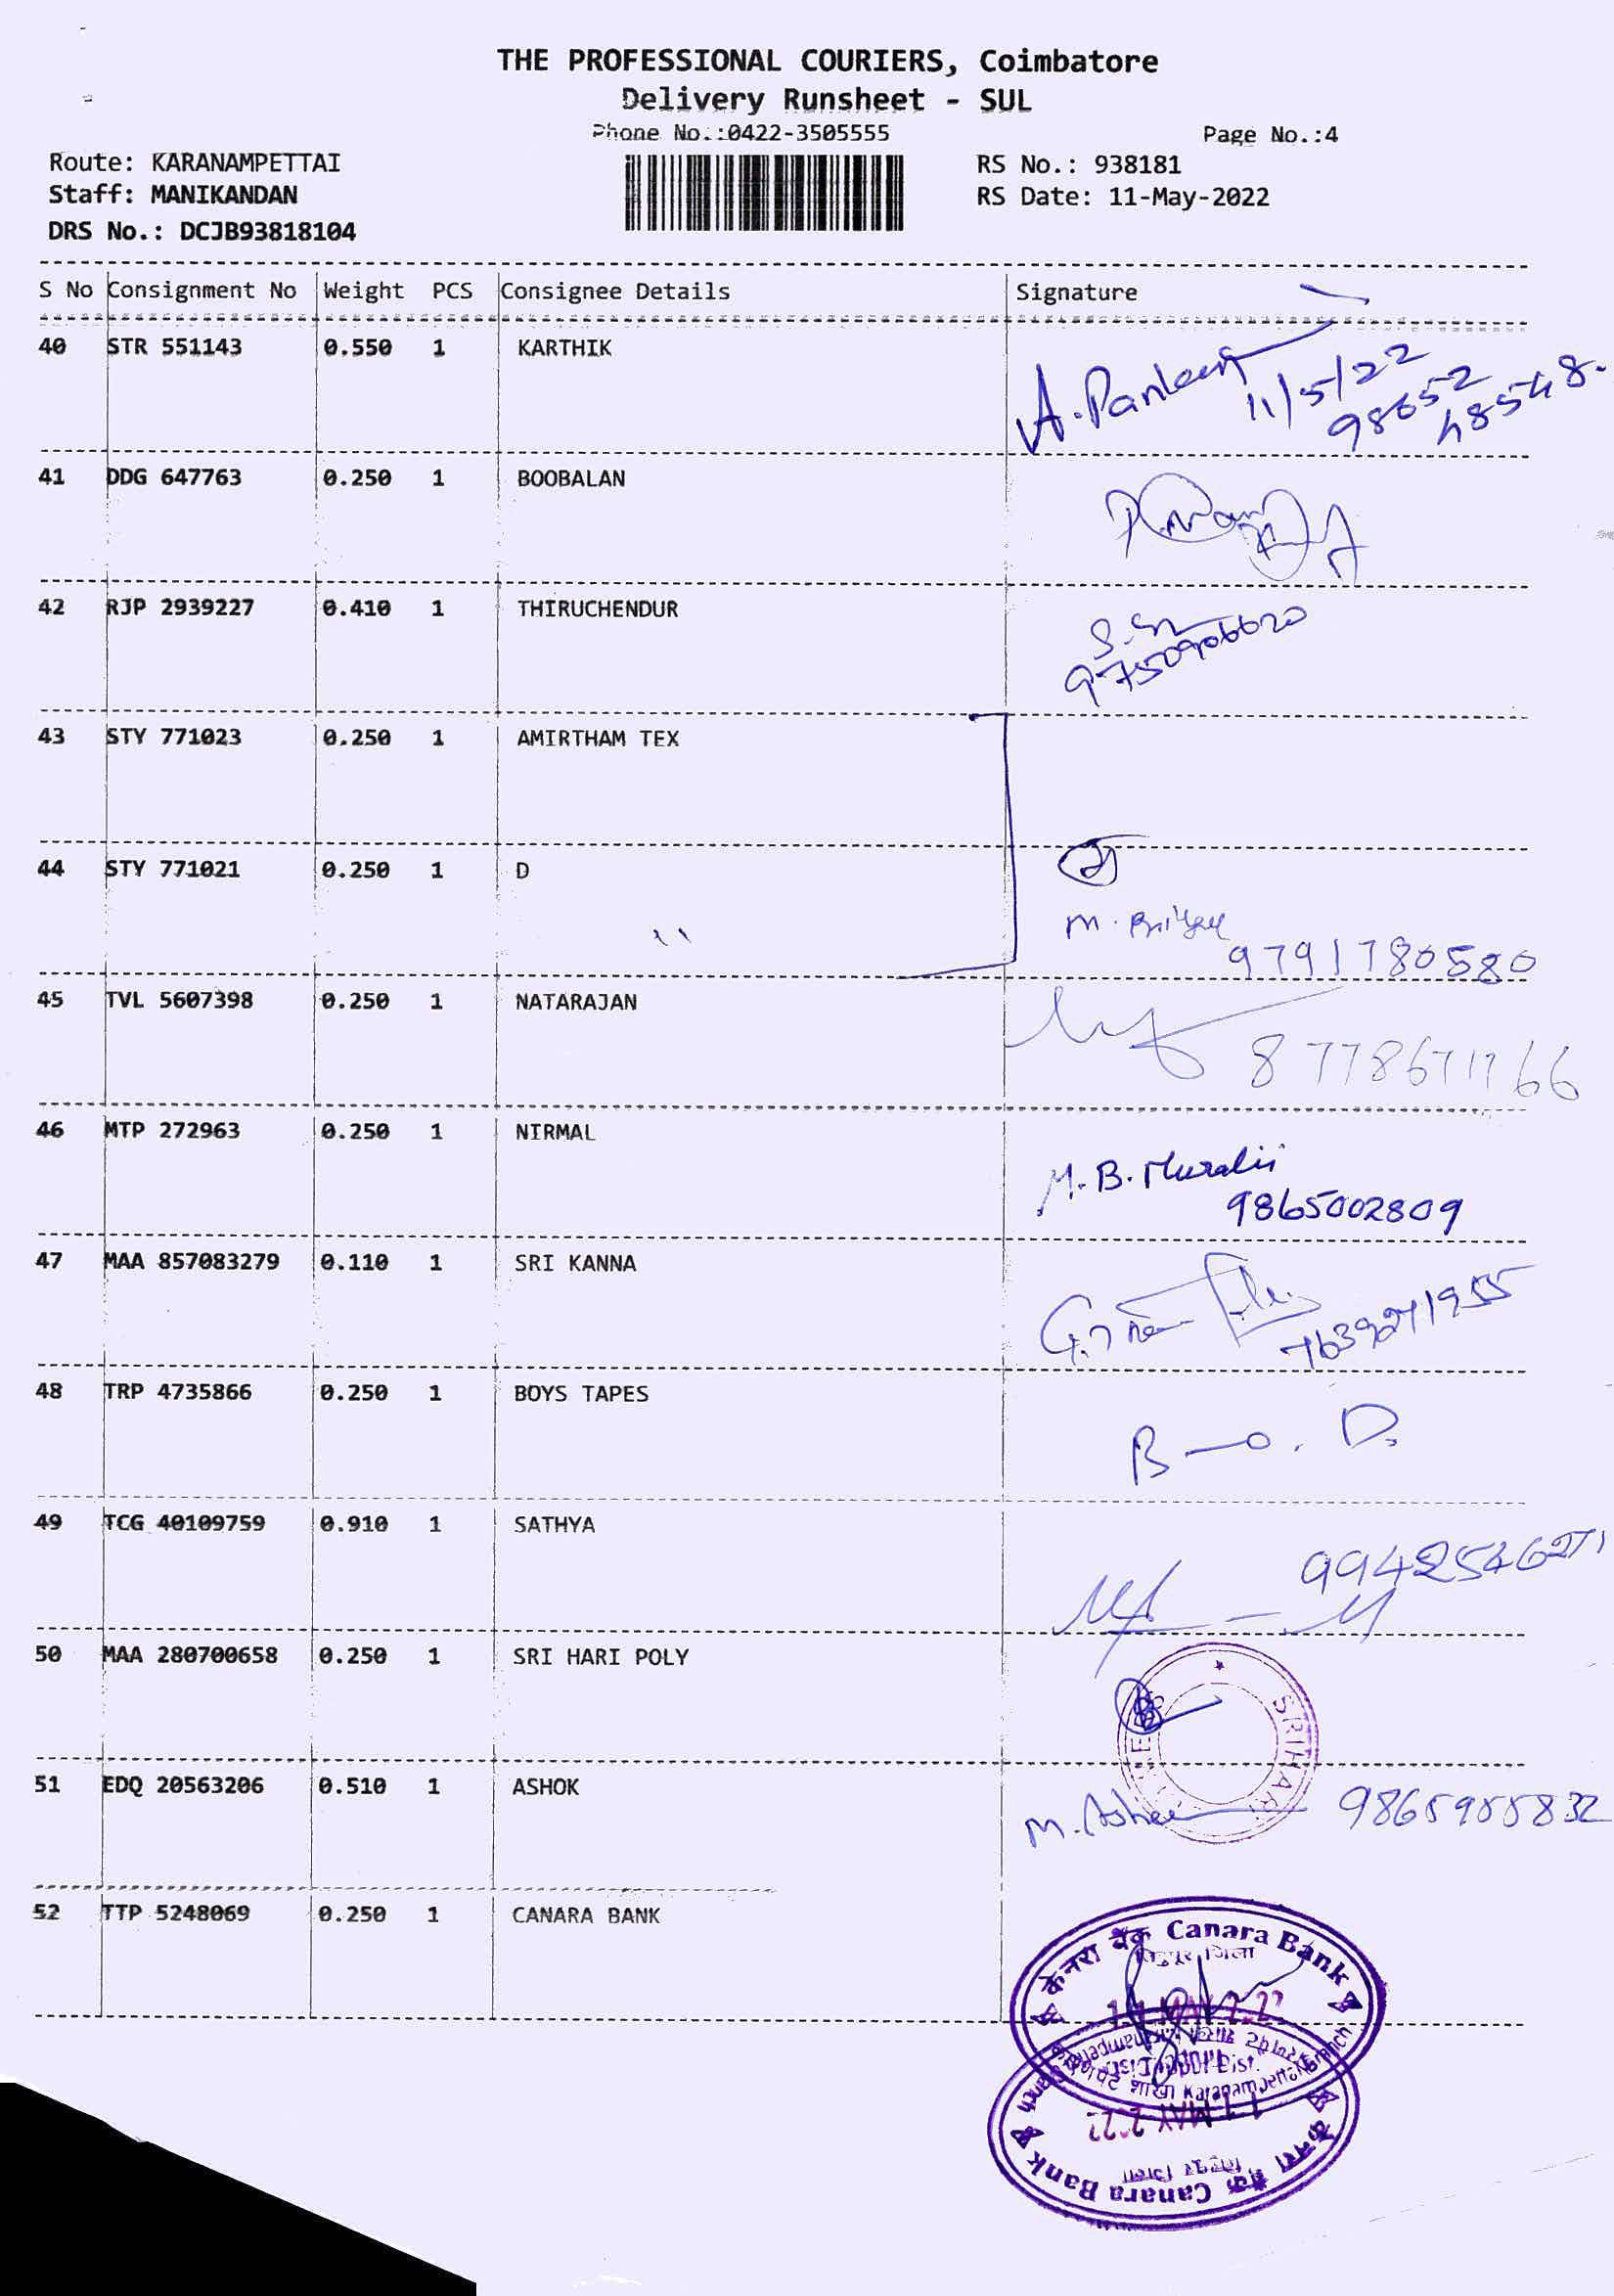 THE PROFESSIONAL COURIERS, Coimbatore
Delivery Runsheet - SUL
Phone No.:0422-3505555
Page No.:4
Route: KARANAMPETTAI
RS No.: 938181
Staff: MANIKANDAN
RS Date: 11-May-2022
DRS No.: DCJB93818104
S No Consignment No Weight PCS Consignee Details Signature
40 STR 551143 0.550 1 KARTHIK
11/5/22
98652
48548.
41 DDG 647763 0.250 1 BOOBALAN
42 RJP 2939227 0.410 1 THIRUCHENDUR
9750906620
43 STY 771023 0.250 1 AMIRTHAM TEX
44 STY 771021 0.250 1 D
9791780580
45 TVL 5607398 0.250 1 NATARAJAN
46 MTP 272963 0.250 1 NIRMAL
M.B. Murali
9865002809
47 MAA 857083279 0.110 1 SRI KANNA
48 TRP 4735866 0.250 1 BOYS TAPES
49 TCG 40109759 0.910 1 SATHYA
50 MAA 280700658 0.250 1 SRI HARI POLY
SRI HARI
51 EDQ 20563206 0.510 1 ASHOK
52 TTP 5248069 0.250 1 CANARA BANK
केनरा बैंक Canara Bank
केनरा बैंक Canara Bank